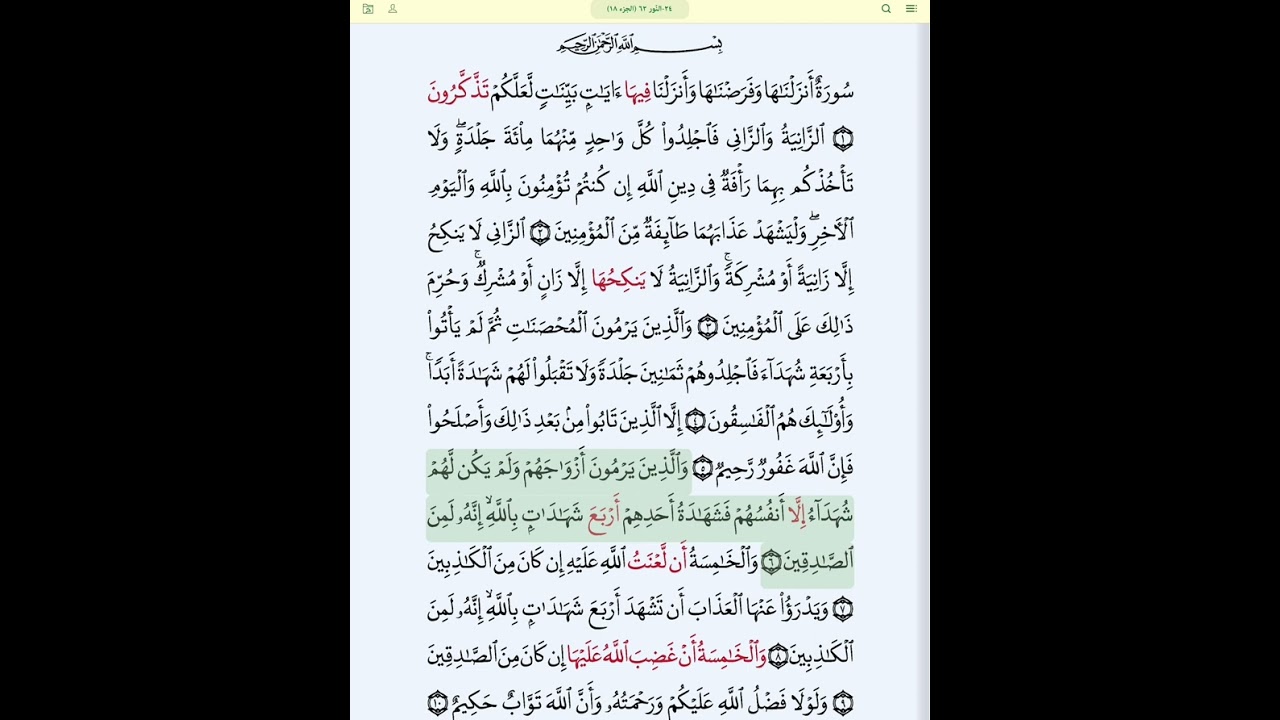 ٢٤-النُّور ٦٢ (الجزء ١٨)
بِسْمِ ٱللَّهِ ٱلرَّحْمَٰنِ ٱلرَّحِيمِ
سُورَةٌ أَنزَلْنَٰهَا وَفَرَضْنَٰهَا وَأَنزَلْنَا فِيهَا ءَايَٰتٍۭ بَيِّنَٰتٍ لَّعَلَّكُمْ تَذَّكَّرُونَ
١ ٱلزَّانِيَةُ وَٱلزَّانِى فَٱجْلِدُوا۟ كُلَّ وَٰحِدٍ مِّنْهُمَا مِا۟ئَةَ جَلْدَةٍ ۖ وَلَا
تَأْخُذْكُم بِهِمَا رَأْفَةٌ فِى دِينِ ٱللَّهِ إِن كُنتُمْ تُؤْمِنُونَ بِٱللَّهِ وَٱلْيَوْمِ
ٱلْءَاخِرِ ۖ وَلْيَشْهَدْ عَذَابَهُمَا طَآئِفَةٌ مِّنَ ٱلْمُؤْمِنِينَ ٢ ٱلزَّانِى لَا يَنكِحُ
إِلَّا زَانِيَةً أَوْ مُشْرِكَةً ۚ وَٱلزَّانِيَةُ لَا يَنكِحُهَا إِلَّا زَانٍ أَوْ مُشْرِكٌ ۚ وَحُرِّمَ
ذَٰلِكَ عَلَى ٱلْمُؤْمِنِينَ ٣ وَٱلَّذِينَ يَرْمُونَ ٱلْمُحْصَنَٰتِ ثُمَّ لَمْ يَأْتُوا۟
بِأَرْبَعَةِ شُهَدَآءَ فَٱجْلِدُوهُمْ ثَمَٰنِينَ جَلْدَةً وَلَا تَقْبَلُوا۟ لَهُمْ شَهَٰدَةً أَبَدًا ۚ
وَأُو۟لَٰٓئِكَ هُمُ ٱلْفَٰسِقُونَ ٤ إِلَّا ٱلَّذِينَ تَابُوا۟ مِنۢ بَعْدِ ذَٰلِكَ وَأَصْلَحُوا۟
فَإِنَّ ٱللَّهَ غَفُورٌ رَّحِيمٌ ٥ وَٱلَّذِينَ يَرْمُونَ أَزْوَٰجَهُمْ وَلَمْ يَكُن لَّهُمْ
شُهَدَآءُ إِلَّآ أَنفُسُهُمْ فَشَهَٰدَةُ أَحَدِهِمْ أَرْبَعَ شَهَٰدَٰتٍۭ بِٱللَّهِ ۙ إِنَّهُۥ لَمِنَ
ٱلصَّٰدِقِينَ ٦ وَٱلْخَٰمِسَةُ أَن لَّعْنَتُ ٱللَّهِ عَلَيْهِ إِن كَانَ مِنَ ٱلْكَٰذِبِينَ
٧ وَيَدْرَؤُا۟ عَنْهَا ٱلْعَذَابَ أَن تَشْهَدَ أَرْبَعَ شَهَٰدَٰتٍۭ بِٱللَّهِ ۙ إِنَّهُۥ لَمِنَ
ٱلْكَٰذِبِينَ ٨ وَٱلْخَٰمِسَةُ أَنْ غَضِبَ ٱللَّهُ عَلَيْهَا إِن كَانَ مِنَ ٱلصَّٰدِقِينَ
٩ وَلَوْلَا فَضْلُ ٱللَّهِ عَلَيْكُمْ وَرَحْمَتُهُۥ وَأَنَّ ٱللَّهَ تَوَّابٌ حَكِيمٌ ١٠